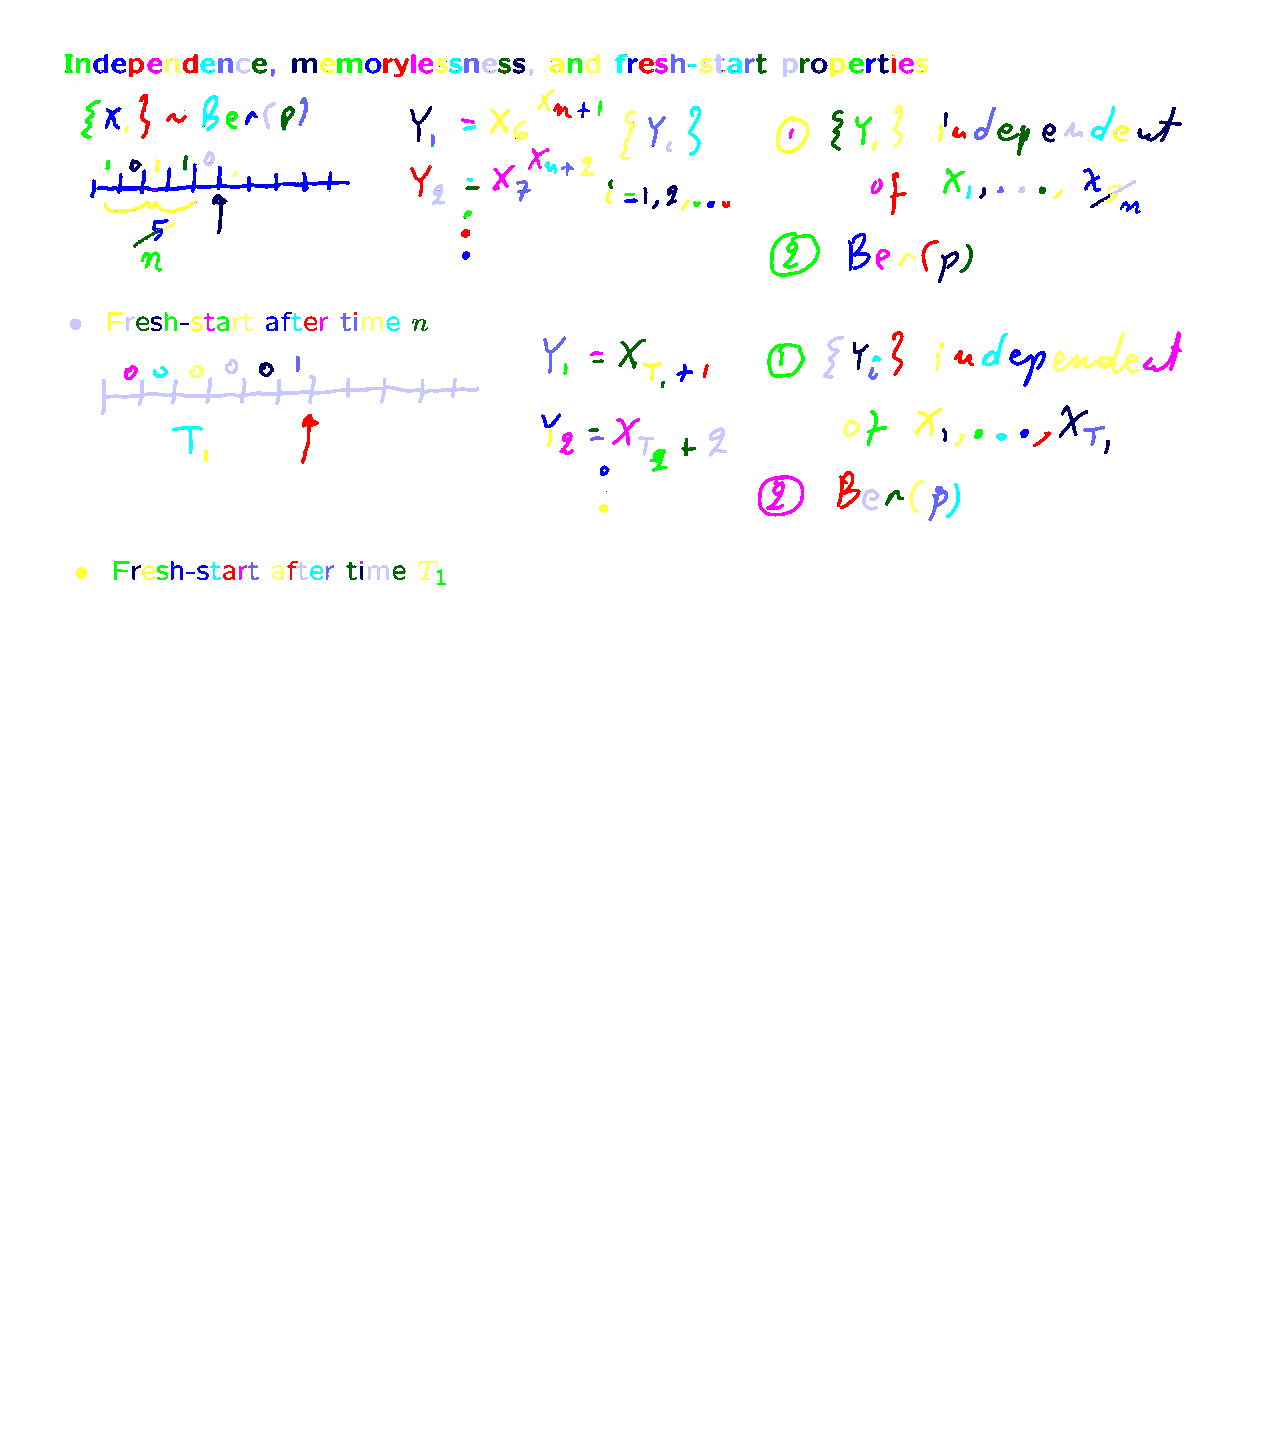 Independence, memorylessness, and fresh-start properties
{X_i} ~ Ber(p)
1 0 1 1 0
5
n
Y_1 = X_6 X_{n+1}
Y_2 = X_7 X_{n+2}
{Y_i}
i = 1, 2, ...
① {Y_i} independent
of X_1, ..., X_n
② Ber(p)
• Fresh-start after time n
0 0 0 0 0 1
T_1
Y_1 = X_{T_1} + 1
Y_2 = X_{T_2} + 2
① {Y_i} independent
of X_1, ..., X_{T_1}
② Ber(p)
• Fresh-start after time T_1